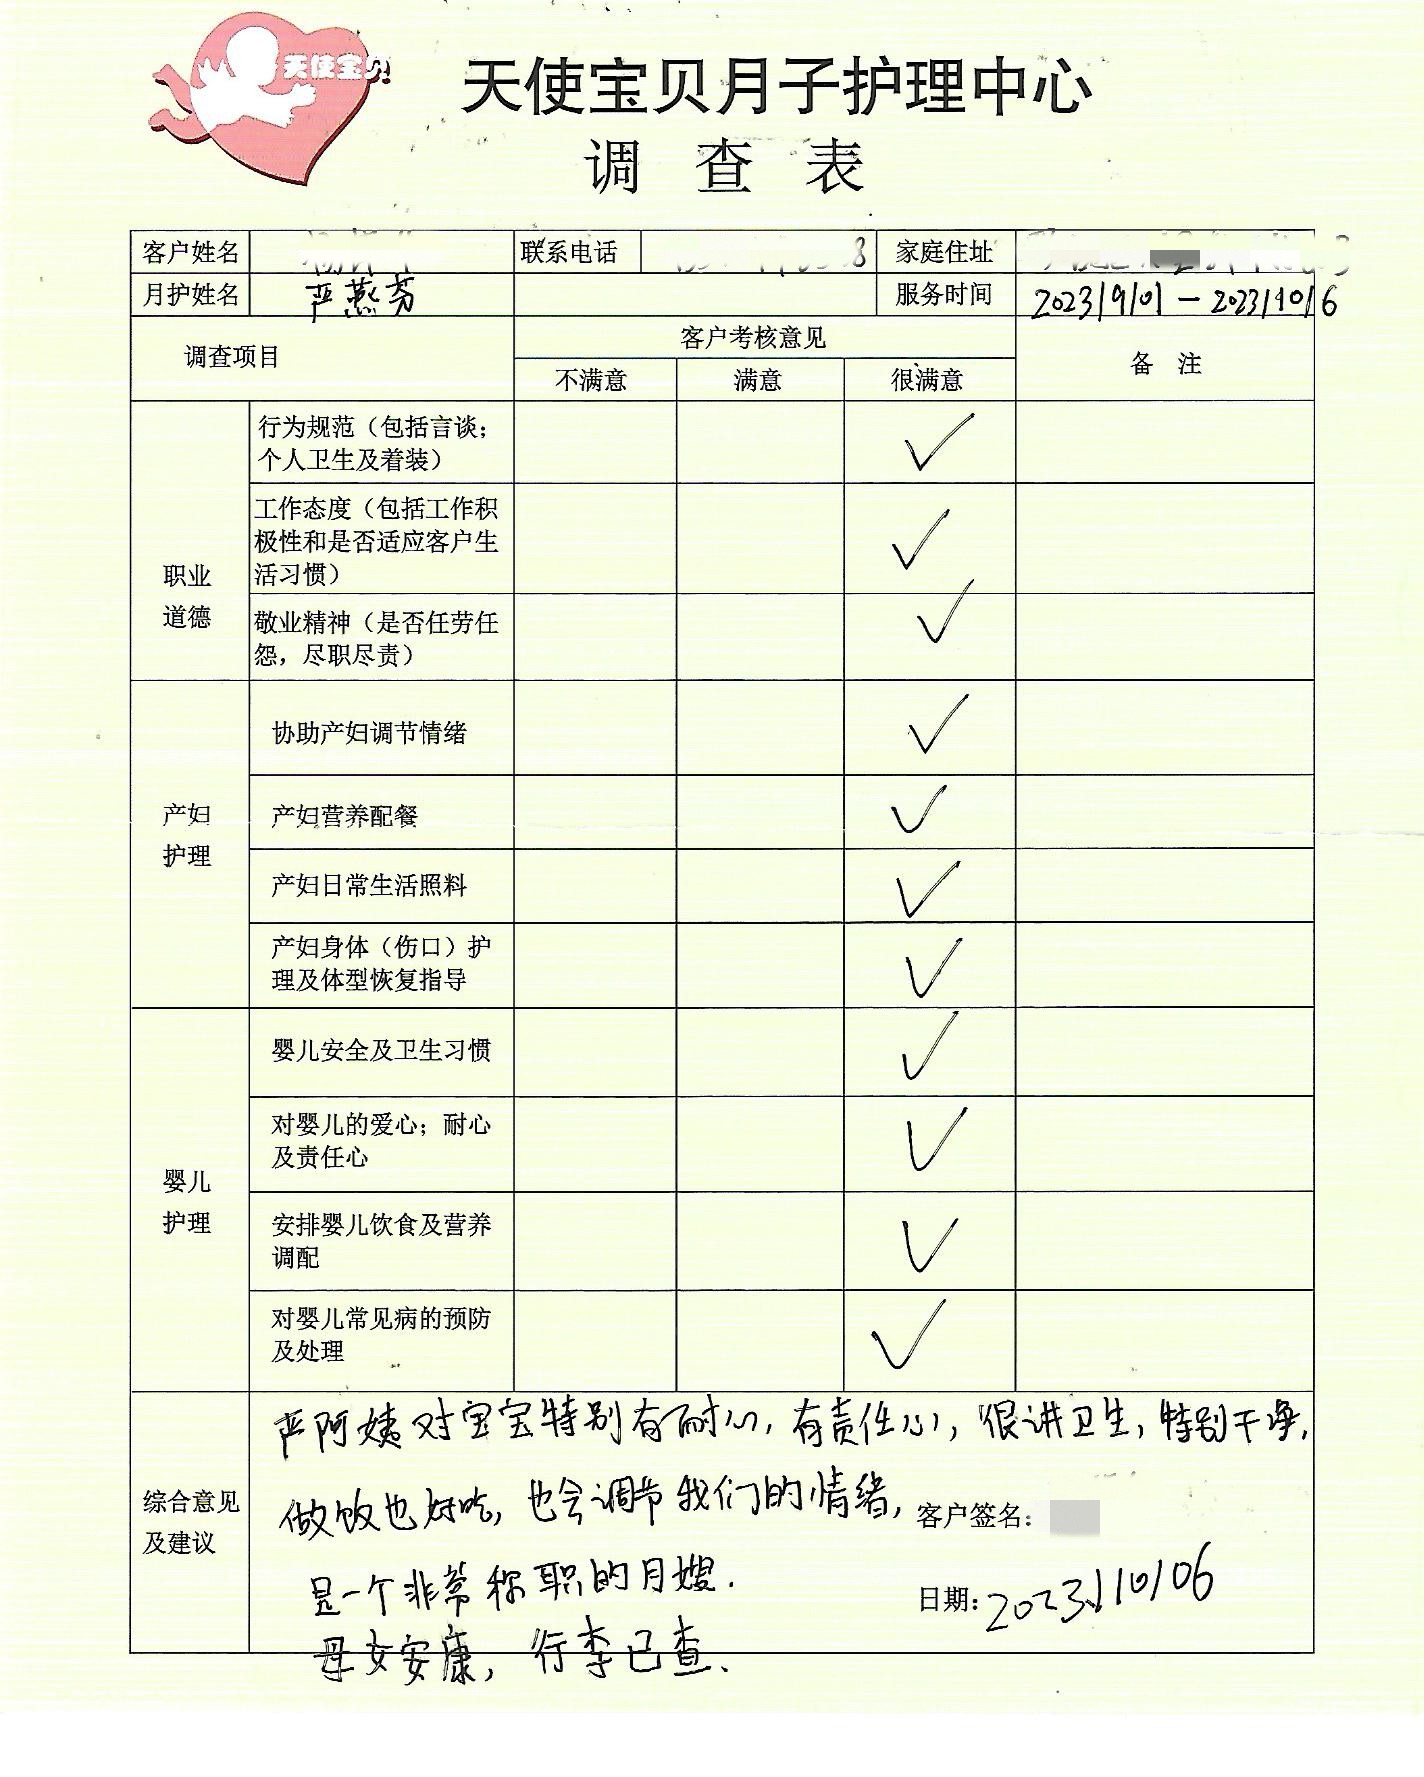 天使宝贝
天使宝贝月子护理中心
调查表
客户姓名 联系电话 8 家庭住址
月护姓名 严燕芬 服务时间 2023/9/01-2023/10/6
调查项目 客户考核意见 备注
不满意 满意 很满意
职业
道德
行为规范（包括言谈；
个人卫生及着装） ✓
工作态度（包括工作积
极性和是否适应客户生
活习惯） ✓
敬业精神（是否任劳任
怨，尽职尽责） ✓
产妇
护理
协助产妇调节情绪 ✓
产妇营养配餐 ✓
产妇日常生活照料 ✓
产妇身体（伤口）护
理及体型恢复指导 ✓
婴儿
护理
婴儿安全及卫生习惯 ✓
对婴儿的爱心；耐心
及责任心 ✓
安排婴儿饮食及营养
调配 ✓
对婴儿常见病的预防
及处理 ✓
综合意见
及建议
严阿姨对宝宝特别有耐心，有责任心，很讲卫生，特别干净，
做饭也好吃，也会调节我们的情绪，
是一个非常称职的月嫂．
母女安康，行李已查．
客户签名：
日期：2023/10/06